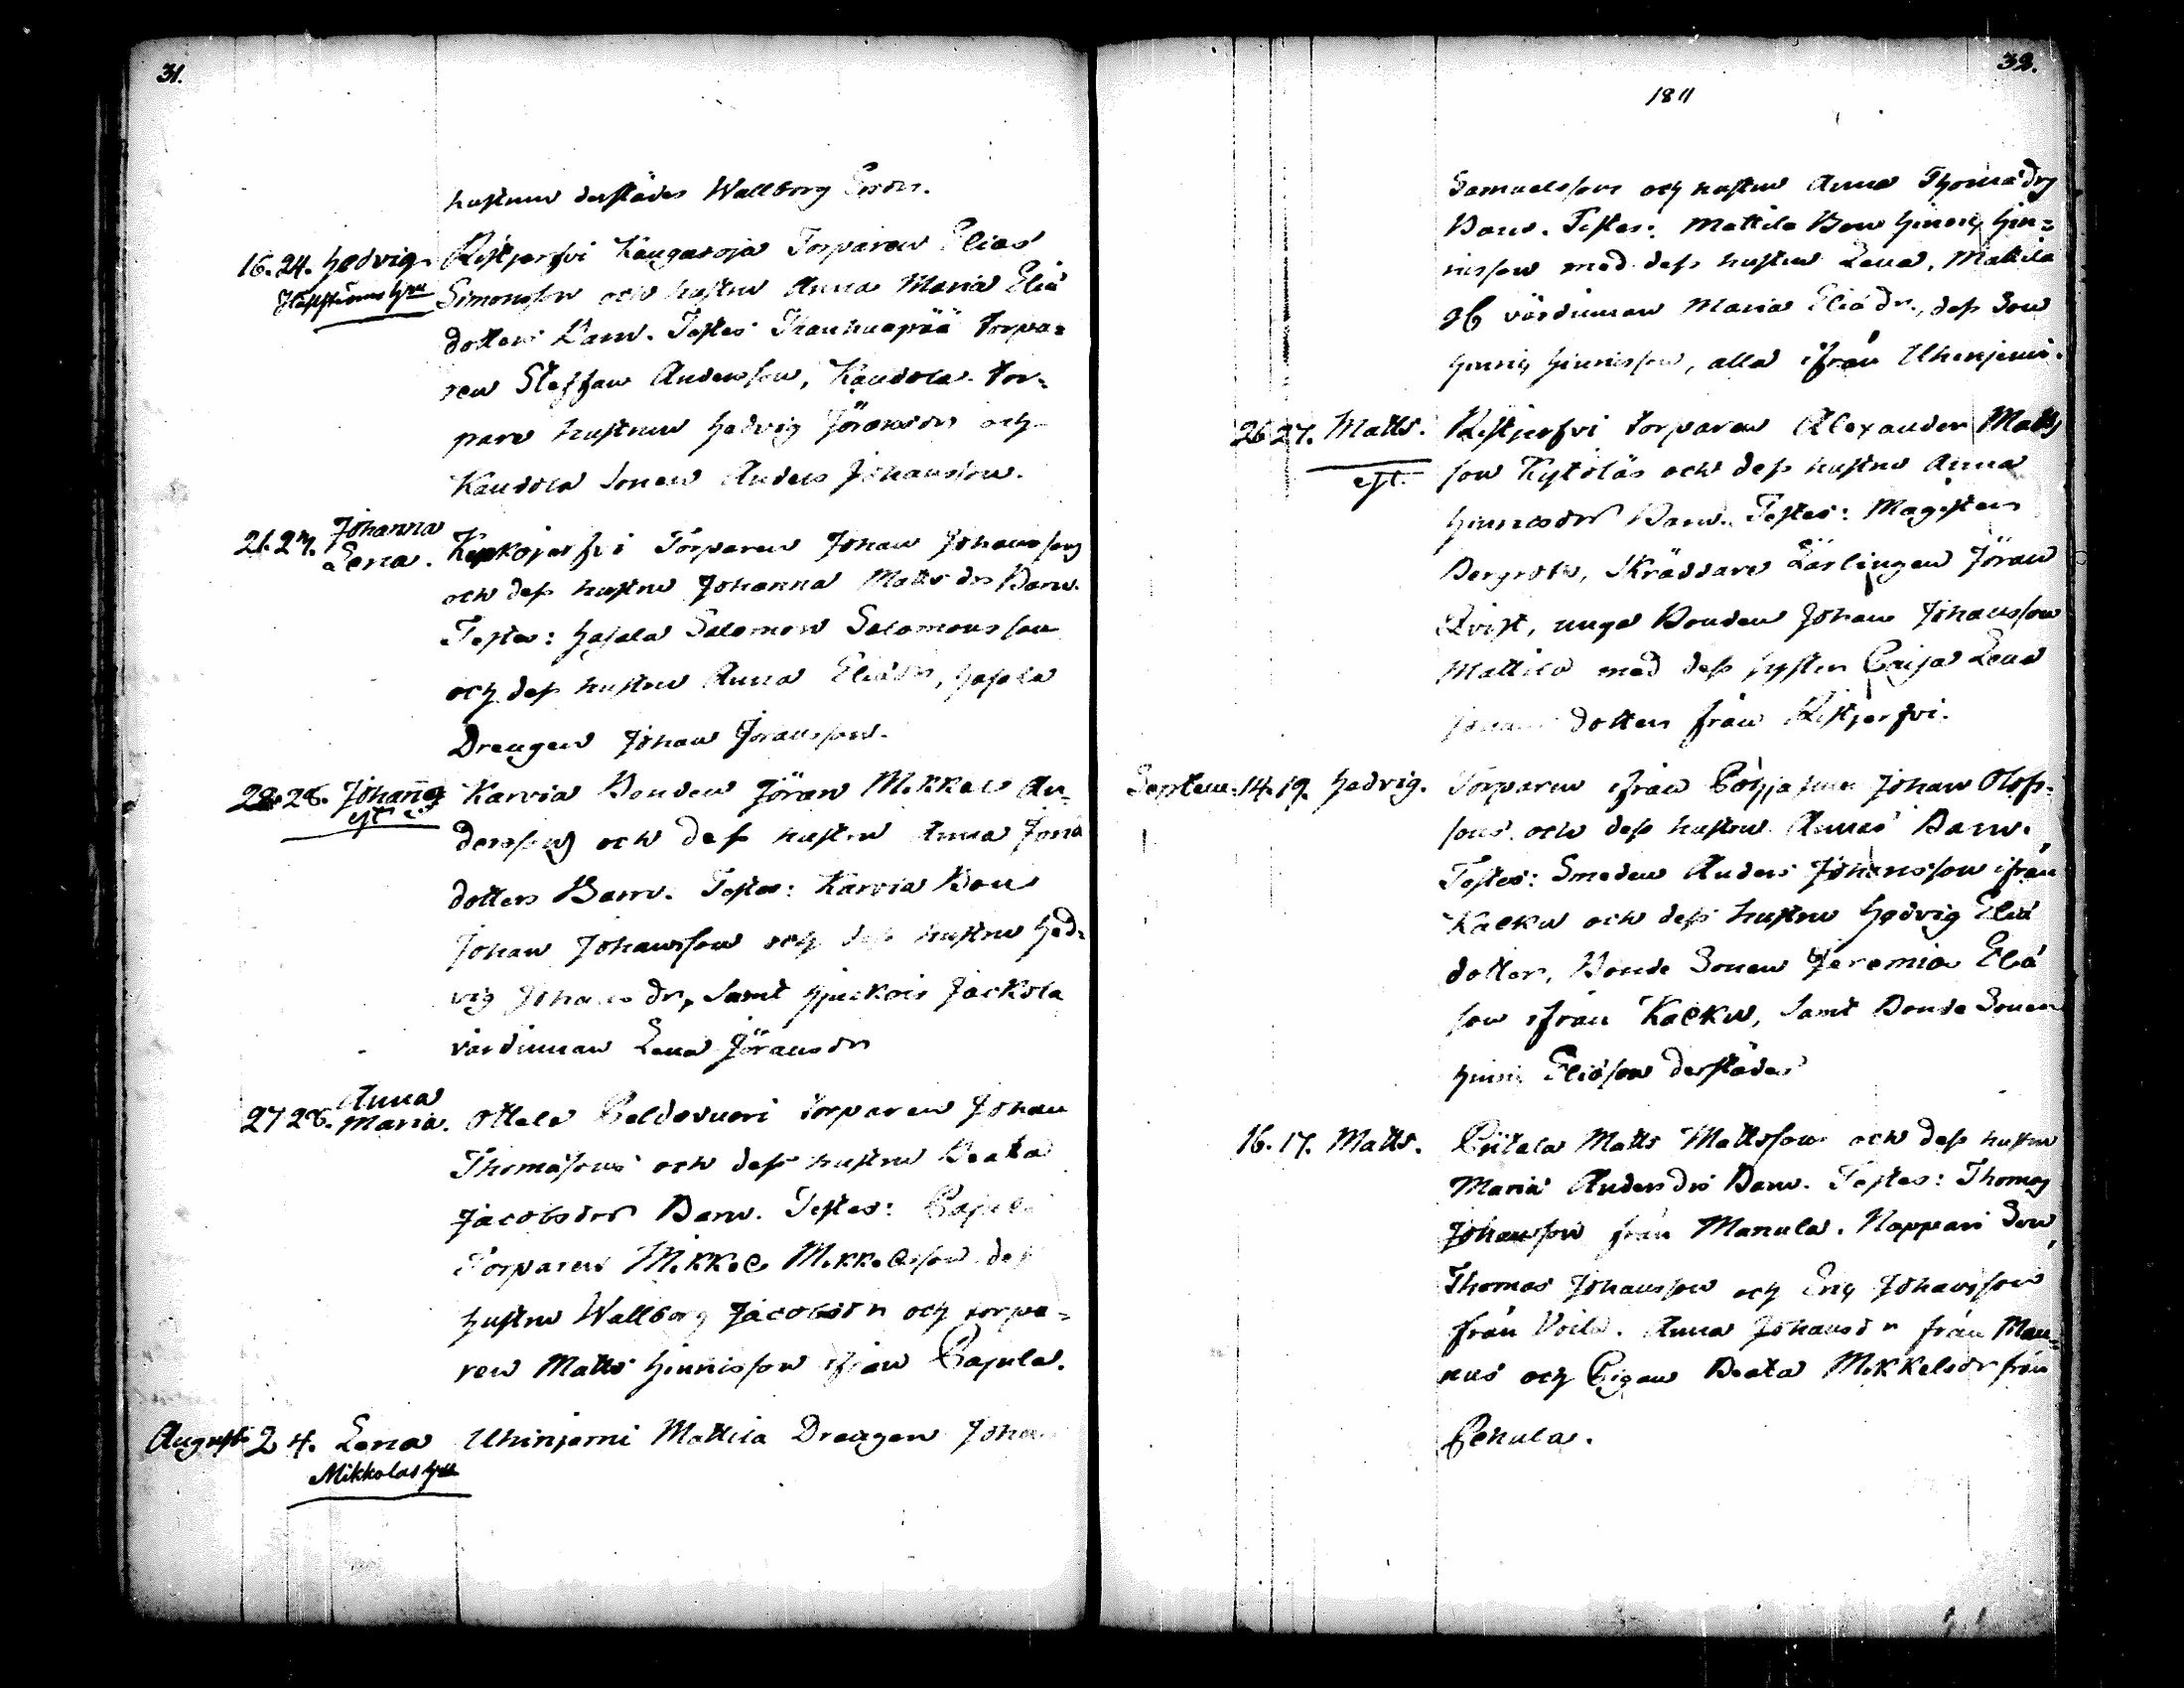 31.
hustrun derstädes Wallborg
16. 24. Hedvig. Ristjerfvi Kangasoja Torparen Elias
Simonsson och hustru Anna Maria Eliæ
dotters Barn. Testes Kauhuapää Torpa=
ren Steffan Andersson, Kandola Tor=
pare hustrun Hedvig Göransdr och
Kandola Sonen Anders Johansson.
21. 27. Johanna
Lena. Torparen Johan Johanssons
och dess hustru Johanna Matts dr Barn.
Testes: Hajala Salomon Salomonsson
och dess hustru Anna Eliædr, Hajala
Drengen Johan Göransson.
28. Johan Karvia Bonden Göran Mikkel An=
derssons och dess hustru Anna Jona
dotters Barn. Testes: Karvia Bon
Johan Johansson och dess hustru Hed=
vig Johans dr, samt Jackola
värdinnan Lena Göransdr
27 28. Anna
Maria. Ottela Peldovuori Torparen Johan
Thomasons och dess hustru Beata
Jacobsdrs Barn. Testes: Pajula
Torparen Mikkel Mikkelsson dess
hustru Wallborg Jacobsdr och torpa=
ren Matts Hinricsson ifrån Pajula.
Augusti 2 4. Lena Uhinjemi Mattila Drengen Johan
Mikkolas
32.
1811
Samuelssons och hustru Anna Thomædrs
Barn. Testes: Mattila Bon Henric Hin=
ricsson med dess hustru Lena, Mattila
gl värdinnan Maria Eliædr., dess Son
Henric Hinricsson, alla ifrån Uhenjemi.
26 27. Matts. Ristjerfvi torparen Alexander Matts
son Kytoläs och dess hustru Anna
Hinricsdrs Barn. Testes: Magistern
Bergroth, Skräddare Lärlingen Göran
Qvist, unga Bonden Johan Johansson
Mattila med dess syster Caisa Lena
Johans dotter från Ristjerfvi.
Septem. 14. 19. Hedvig. Torparen ifrån Johan Olofs=
sons och dess hustru Annas Barn.
Testes: Smeden Anders Johansson ifrån
Kalku och dess hustru Hedvig Eliæ
dotter, Bonde Sonen Jeremia Eliæ
son ifrån Kalku, samt Bonde Sonen
Hinric Eliæson derstädes
16. 17. Matts. Pütala Matts Mattsson och dess hustru
Maria Anders drs Barn. Testes: Thomas
Johansson från Manula. Nappari Son
Thomas Johansson och Eric Johansson
från Voila. Anna Johansdr från Man=
nus och Pigan Beata Mikkelsdr från
Pehula.